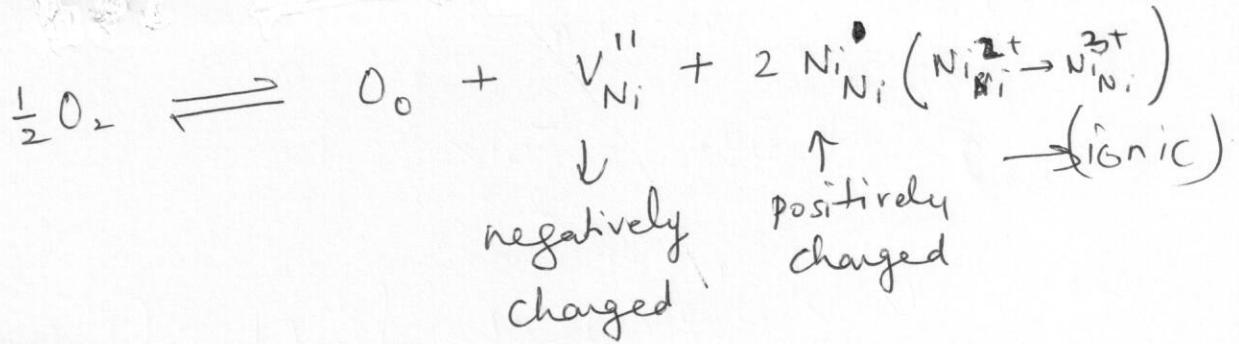 ½O₂ ⇌ O₀ + V″Ni + 2 Ni•Ni (Ni²⁺Ni → Ni³⁺Ni)
→ (ionic)
↓ ↑
negatively charged
positively charged